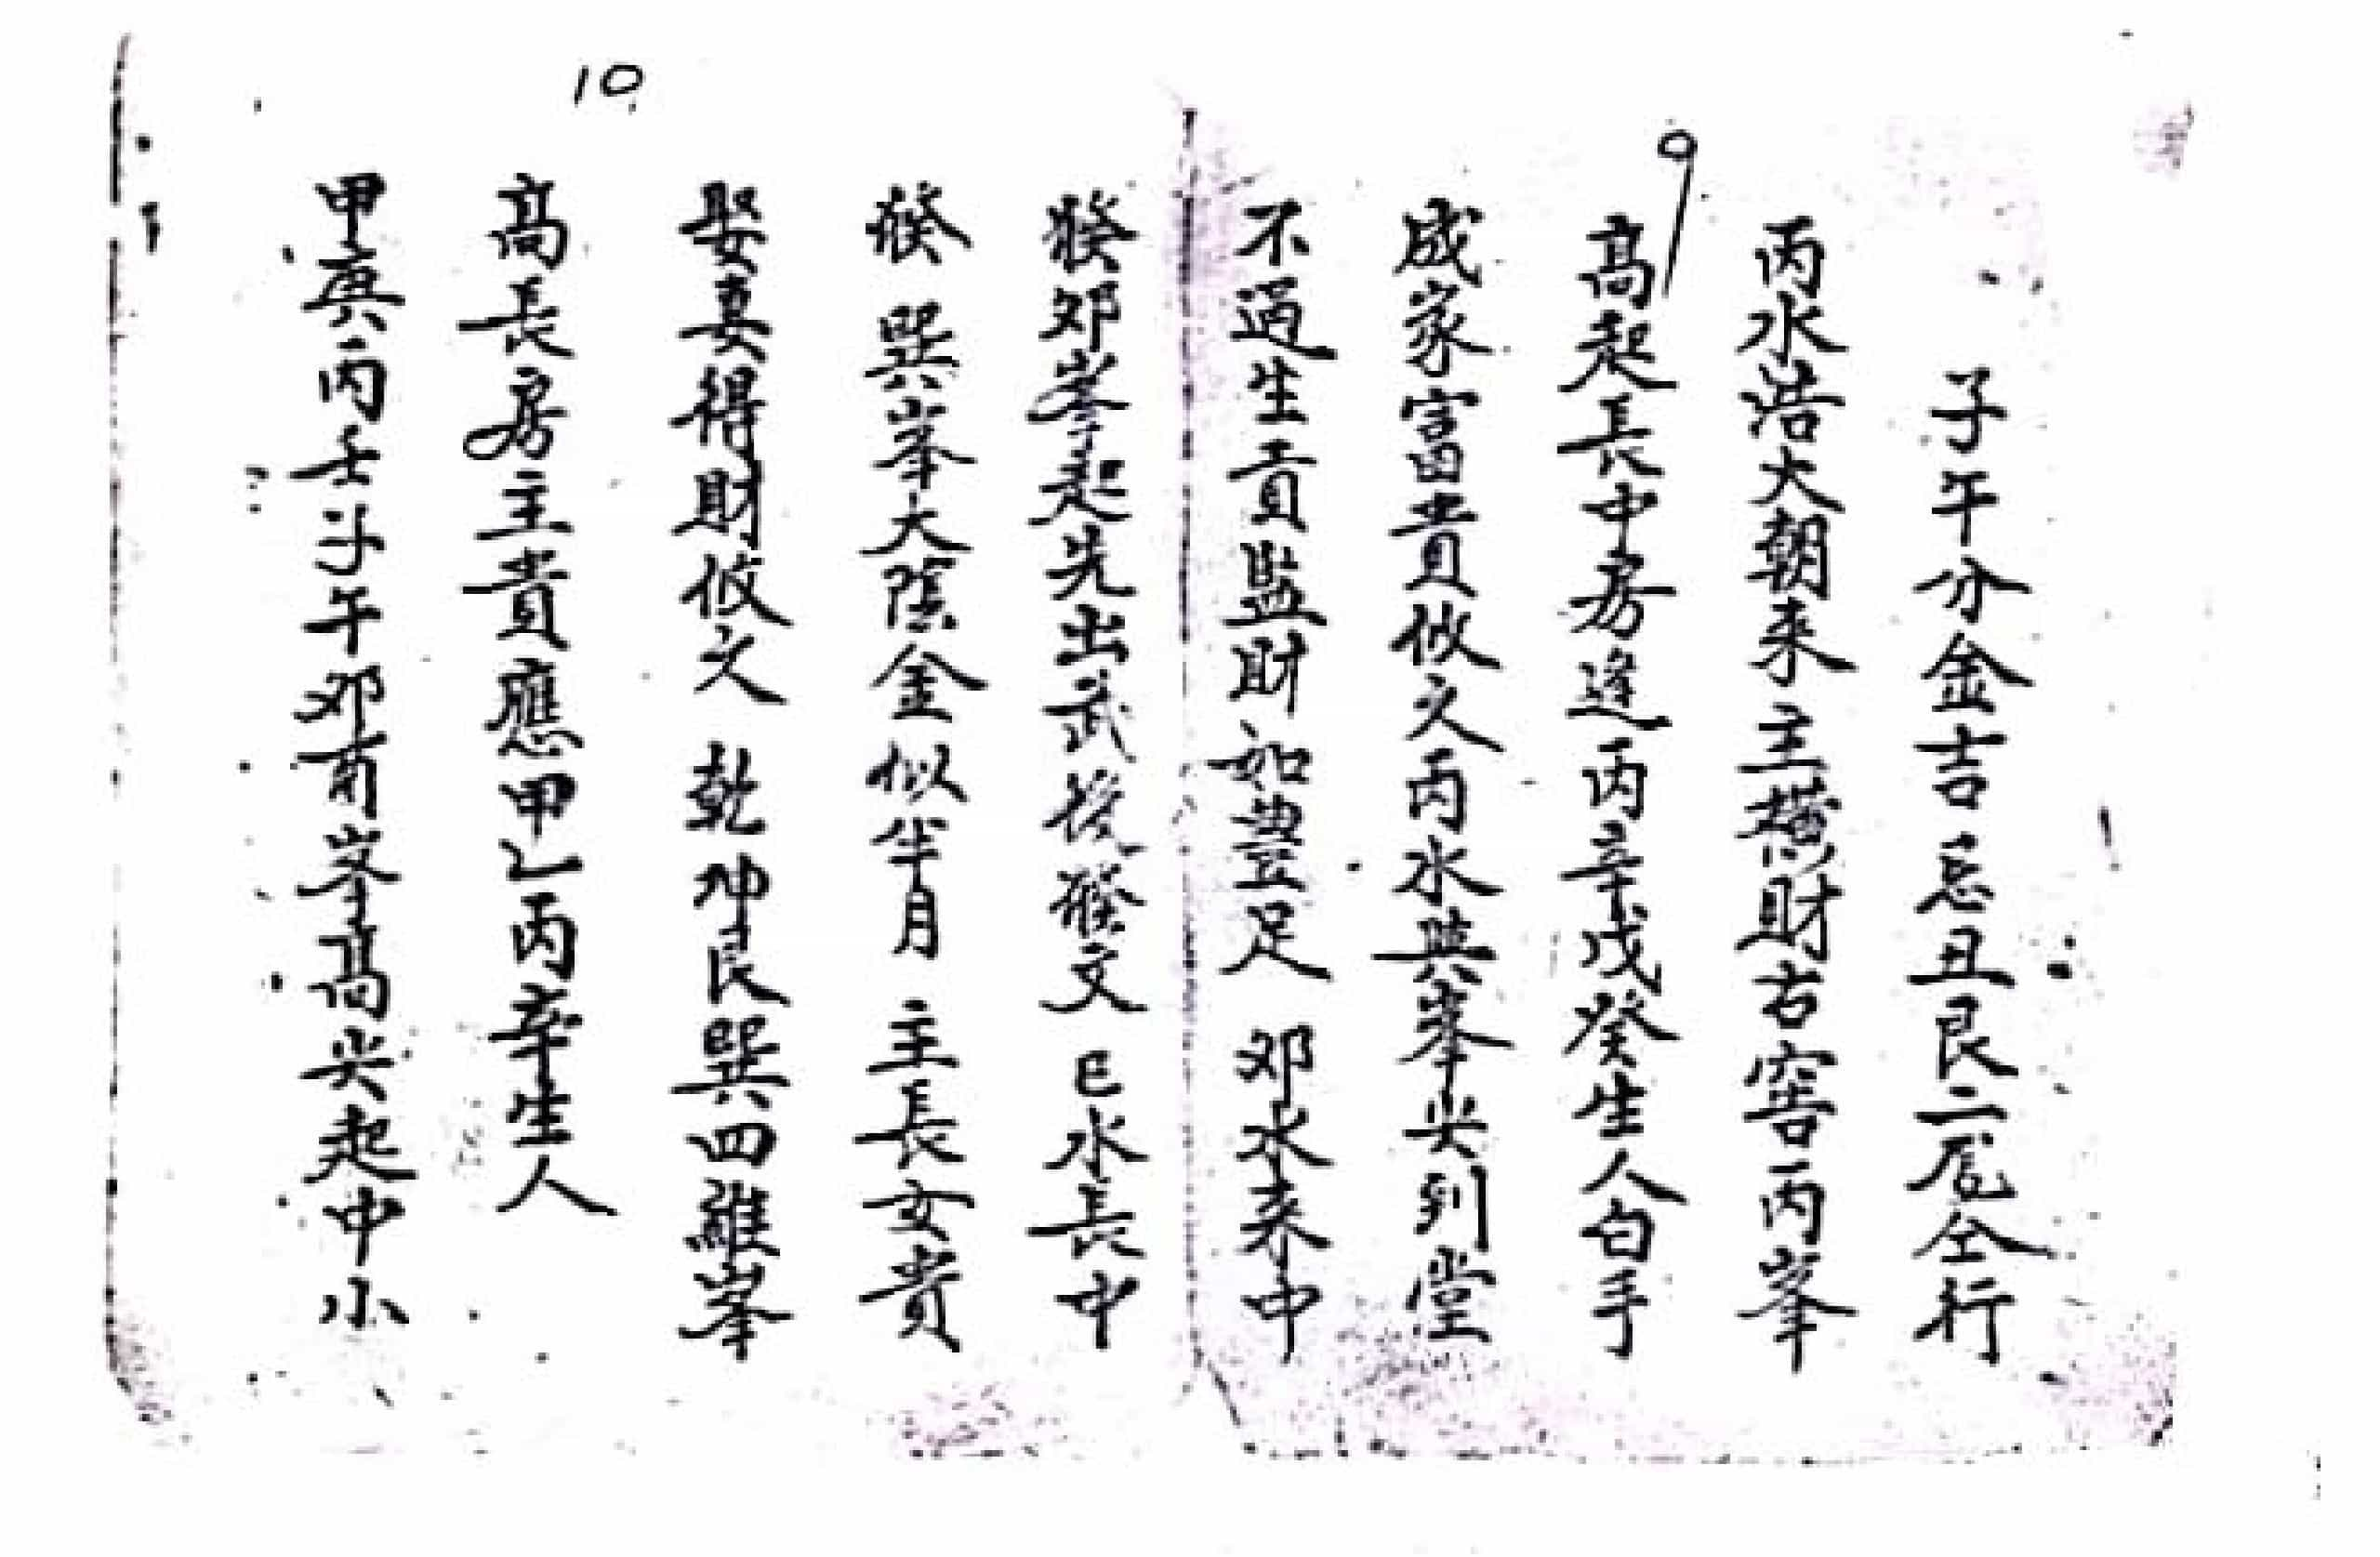 9
子午分金吉 忌丑艮二尾仝行
丙水浩大朝来主横財古窖丙峯
高起長中房逢丙辛戊癸生人白手
成家富貴攸久丙水與峯尖到堂
不過生貢監財如豊足 邜水来中
發邜峯起先出武後發文 巳水長中
發 巽峯大陰金似半月 主長女貴
娶妻得財攸久 乾坤艮巽四維峯
10
高長房主貴應甲乙丙辛生人
甲庚丙壬子午邜酉峯高尖起中小